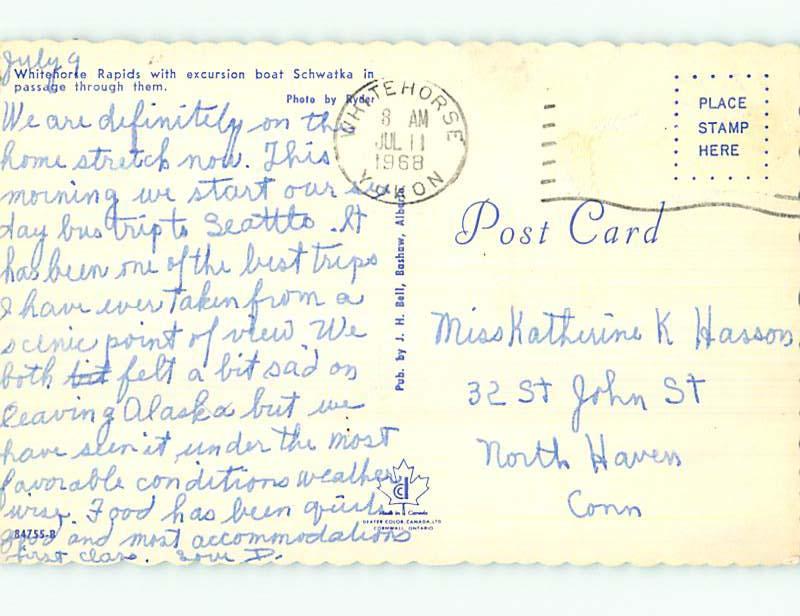 July 9
Whitehorse Rapids with excursion boat Schwatka in
passage through them.
Photo by Ryder
We are definitely on the
home stretch now. This
morning we start our
day bus trip to Seattle. It
has been one of the best trips
I have ever taken from a
scenic point of view. We
both felt a bit sad on
leaving Alaska but we
have seen it under the most
favorable conditions weather
wise. Food has been quite
good and most accommodations
first class. Love D.
84755-B
WHITEHORSE
8 AM
JUL 11
1968
YUKON
Pub. by J. H. Bell, Bashaw, Alberta
PLACE
STAMP
HERE
Post Card
Miss Katherine K Hasson
32 St John St
North Haven
Conn
Made in Canada
DEXTER COLOR CANADA, LTD
CORNWALL, ONTARIO